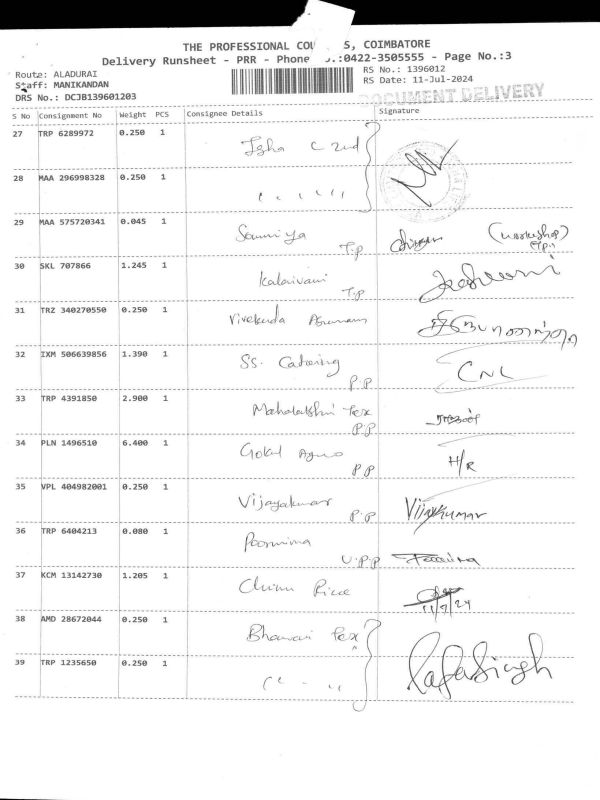 THE PROFESSIONAL COU S, COIMBATORE
Delivery Runsheet - PRR - Phone .:0422-3505555 - Page No.:3
Route: ALADURAI
RS No.: 1396012
Staff: MANIKANDAN
RS Date: 11-Jul-2024
DRS No.: DCJB139601203
DOCUMENT DELIVERY
S No Consignment No Weight PCS Consignee Details Signature
27 TRP 6289972 0.250 1
28 MAA 296998328 0.250 1
29 MAA 575720341 0.045 1 Sowmiya T.P (workshop)
30 SKL 707866 1.245 1 Kalaivani T.P
31 TRZ 340270550 0.250 1
32 IXM 506639856 1.390 1 SS. Catering P.P CNL
33 TRP 4391850 2.900 1 Mahalakshmi Tex P.P
34 PLN 1496510 6.400 1 Gokul Agro P.P H/R
35 VPL 404982001 0.250 1 Vijayakumar P.P Vijaykumar
36 TRP 6404213 0.080 1 Poornima U.P.P
37 KCM 13142730 1.205 1 11/7/24
38 AMD 28672044 0.250 1 Bhavani Tex
39 TRP 1235650 0.250 1 " - "